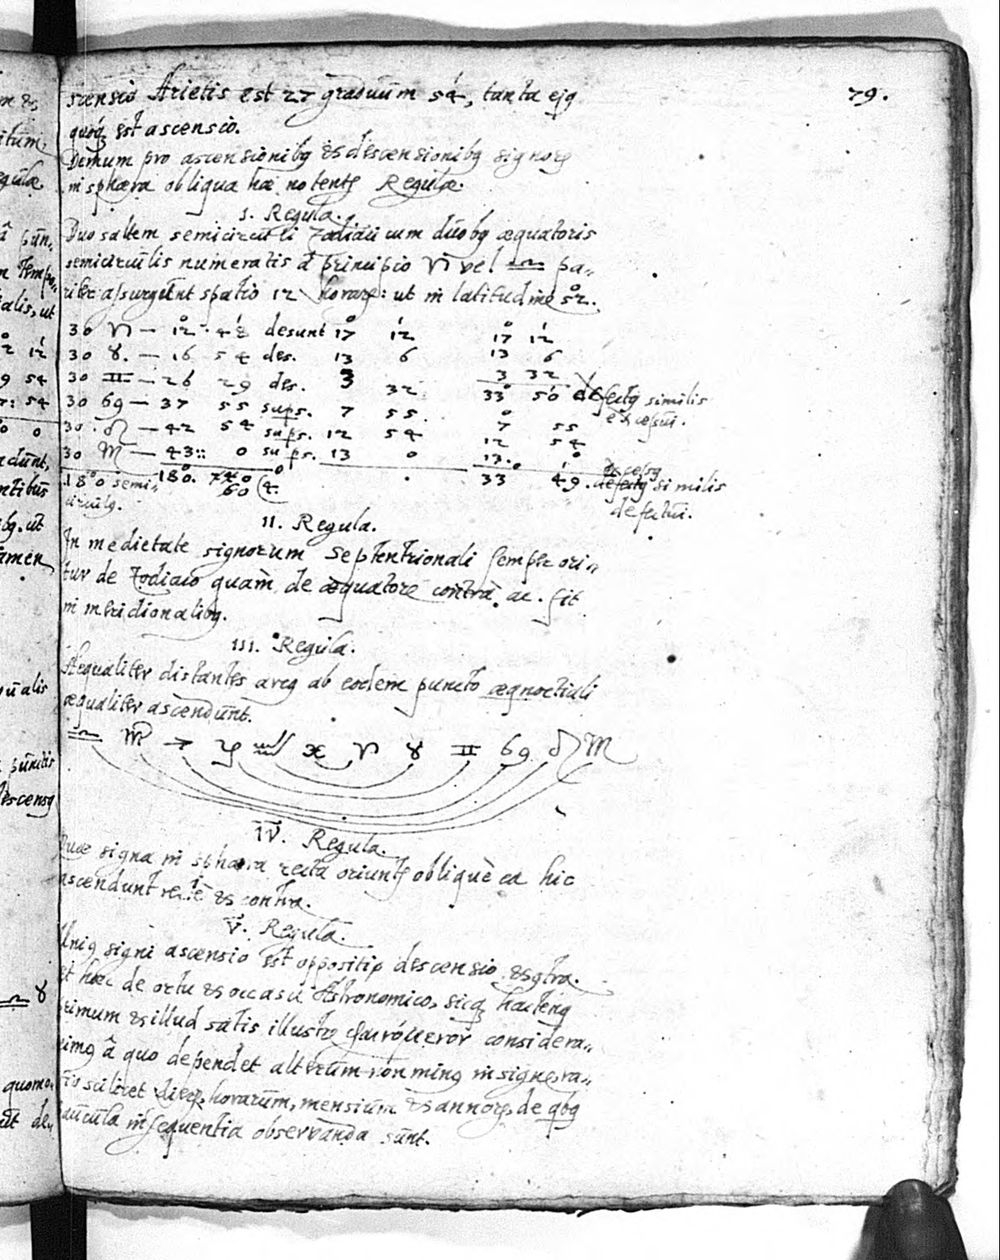 79.
scensio Arietis est 27 graduum 54, tanta ejq
quoq est ascensio.
Demum pro ascensionibq & descensionibq signorꝝ
in sphæra obliqua hæ notentr Regulæ.
I. Regula.
Duo saltem semicirculi Zodiaci cum duobq æquatoris
semicirculis numeratis à principio ♈ vel ♎ pa-
riter assurgunt spatio 12 horarꝝ: ut in latitudine 52.
30 ♈ — 12 48 desunt 17 12 17 12
30 ♉. — 16 54 des. 13 6 13 6
30 ♊ — 26 29 des. 3 32 3 32
33 50 defectq similis
excessui.
30 ♋ — 37 55 supr. 7 55 7 55
30 ♌ — 42 54 supr. 12 54 12 54
30 ♍ — 43 0 supr. 13 0 13. 0
180 semi- 180. 33 49. similis
circulq. defectui.
II. Regula.
In medietate signorum Septentrionali semper ori-
tur de Zodiaco quàm de æquatore contrà ac fit
in meridionalibq.
III. Regula.
Aequaliter distantes arcq ab eodem puncto æqnoctiali
æqualiter ascendunt.
♎ ♏ ♐ ♑ ♒ ♓ ♈ ♉ ♊ ♋ ♌ ♍
IV. Regula.
Quæ signa in sphæra recta oriuntr obliquè ea hic
ascendunt rectè & contra.
V. Regula.
Uniq signi ascensio est oppositi descensio &
et hæc de ortu & occasu Astronomico, sicq hactenq
primum & illud satis illustre considera-
vimq â quo dependet alterum non minq insigne, ra-
scilicet dierꝝ, horarum, mensium & annorꝝ, de qbq
in sequentia observanda sunt.